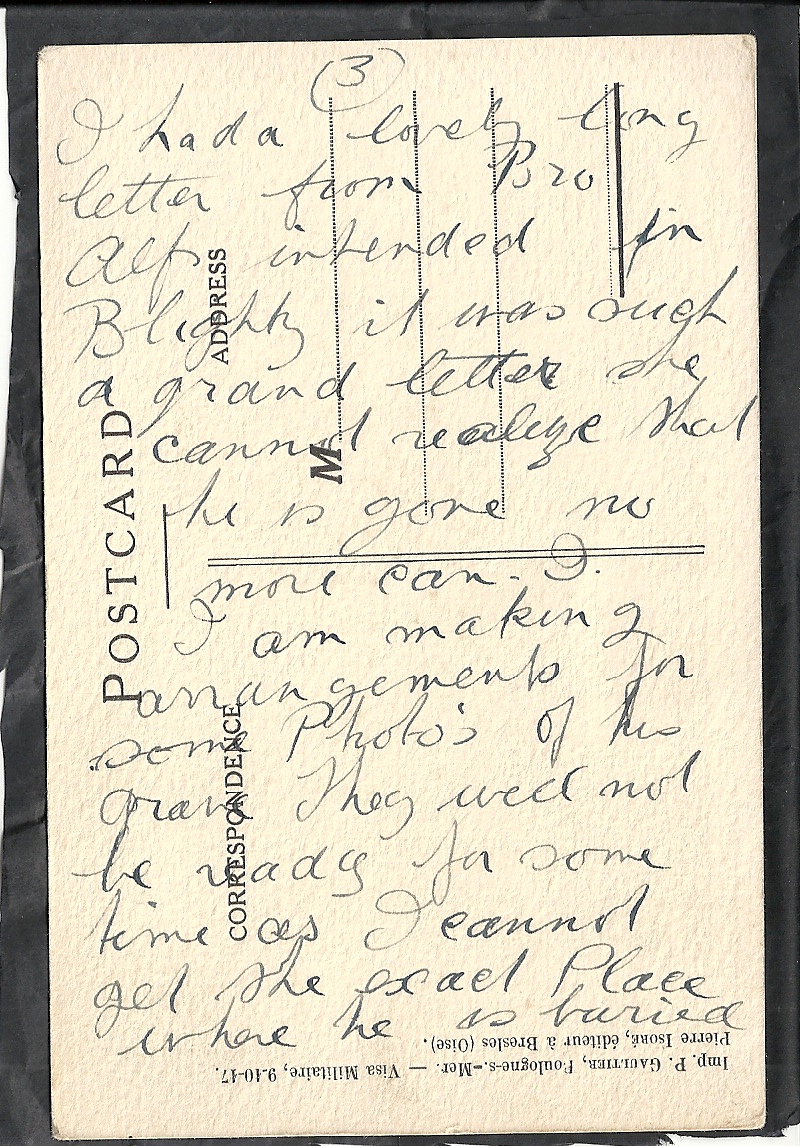 (3)
I had a lovely long
letter from Bro
Alfs intended in
Blighty it was such
a grand letter she
cannot realize that
he is gone no
more can. I.
I am making
arrangements for
some Photo's of his
Grave They will not
be ready for some
time as I cannot
get the exact Place
where he is buried
POSTCARD
ADDRESS
M
CORRESPONDENCE
Imp. P. GAULTIER, Boulogne-s.-Mer. — Visa Militaire, 9-10-17.
Pierre ISORÉ, éditeur à Bresles (Oise).